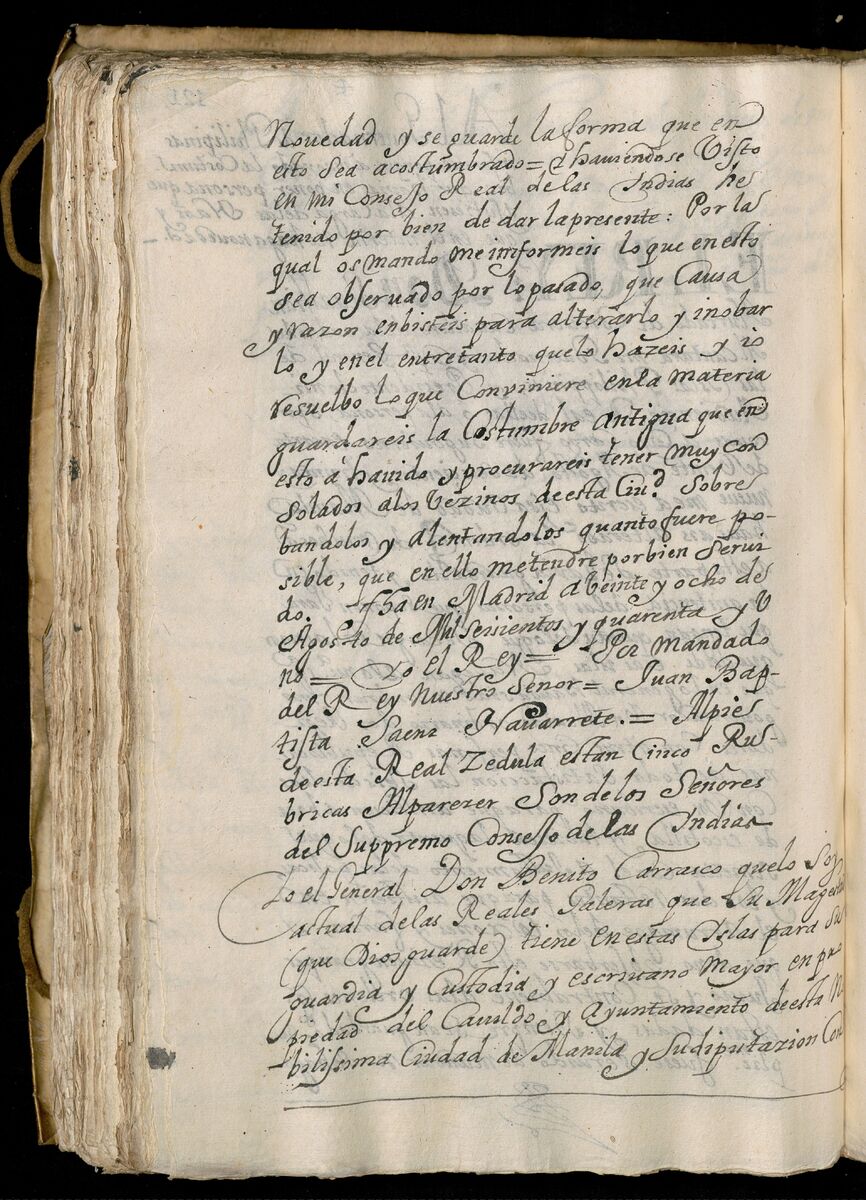 Nouedad y se guarde la forma que en
esto sea acostumbrado = Y hauiendose Visto
en mi Consejo Real de las Indias he
tenido por bien de dar la presente: Por la
qual os mando me imformeis lo que en esto
sea obseruado por lo pasado, que Causa
y razon enbisteis para alterarlo y inobar
lo y en el entretanto que lo hazeis y io
resuelbo lo que Conviniere en la materia
guardareis la Costumbre antigua que en
esto á hauido y procurareis tener muy con
solados a los Vezinos de esta Ciud. Sobre
bandolos y alentandolos quanto fuere po-
sible, que en ello me tendre por bien Serui
do. fha en Madrid a Veinte y ocho de
Agosto de Mil seisientos y quarenta y V
no = Yo el Rey = Por mandado
del Rey Nuestro Señor = Juan Bap-
tista Saenz Navarrete. = Al pie
de esta Real Zedula estan Cinco Ru-
bricas Al parezer Son de los Señores
del Suppremo Consejo de las Indias
Yo el General Don Benito Carrasco que lo Soy
actual de las Reales Galeras que Su Magestad
(que Dios guarde) tiene en estas Islas para Su
guardia y Custodia y escriuano Mayor en pro
piedad del Cauildo y Ayuntamiento de esta N
bilissima Ciudad de Manila y Su diputazion Con